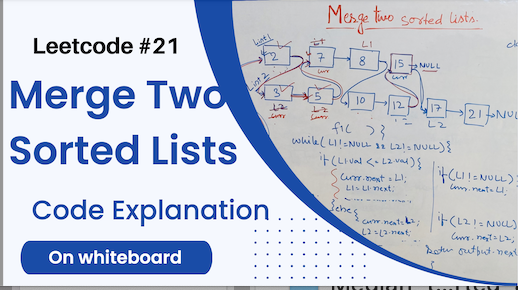 Leetcode #21
Merge Two
Sorted Lists
Code Explanation
On whiteboard
Merge two sorted lists.
List1
L1
L1
2
7
8
15
NULL
curr
curr
List 2
3
5
10
12
17
21
NULL
L2
L2
curr
curr
L2
f1( ) }
while(L1!=NULL && L2!=NULL){
if(L1.val <= L2.val){
curr.next = L1;
L1 = L1.next;
else{
curr.next=L2;
L2 = L2.next
if(L1!=NULL)
curr.next=L1;
if(L2!=NULL)
curr.next=L2;
output.next